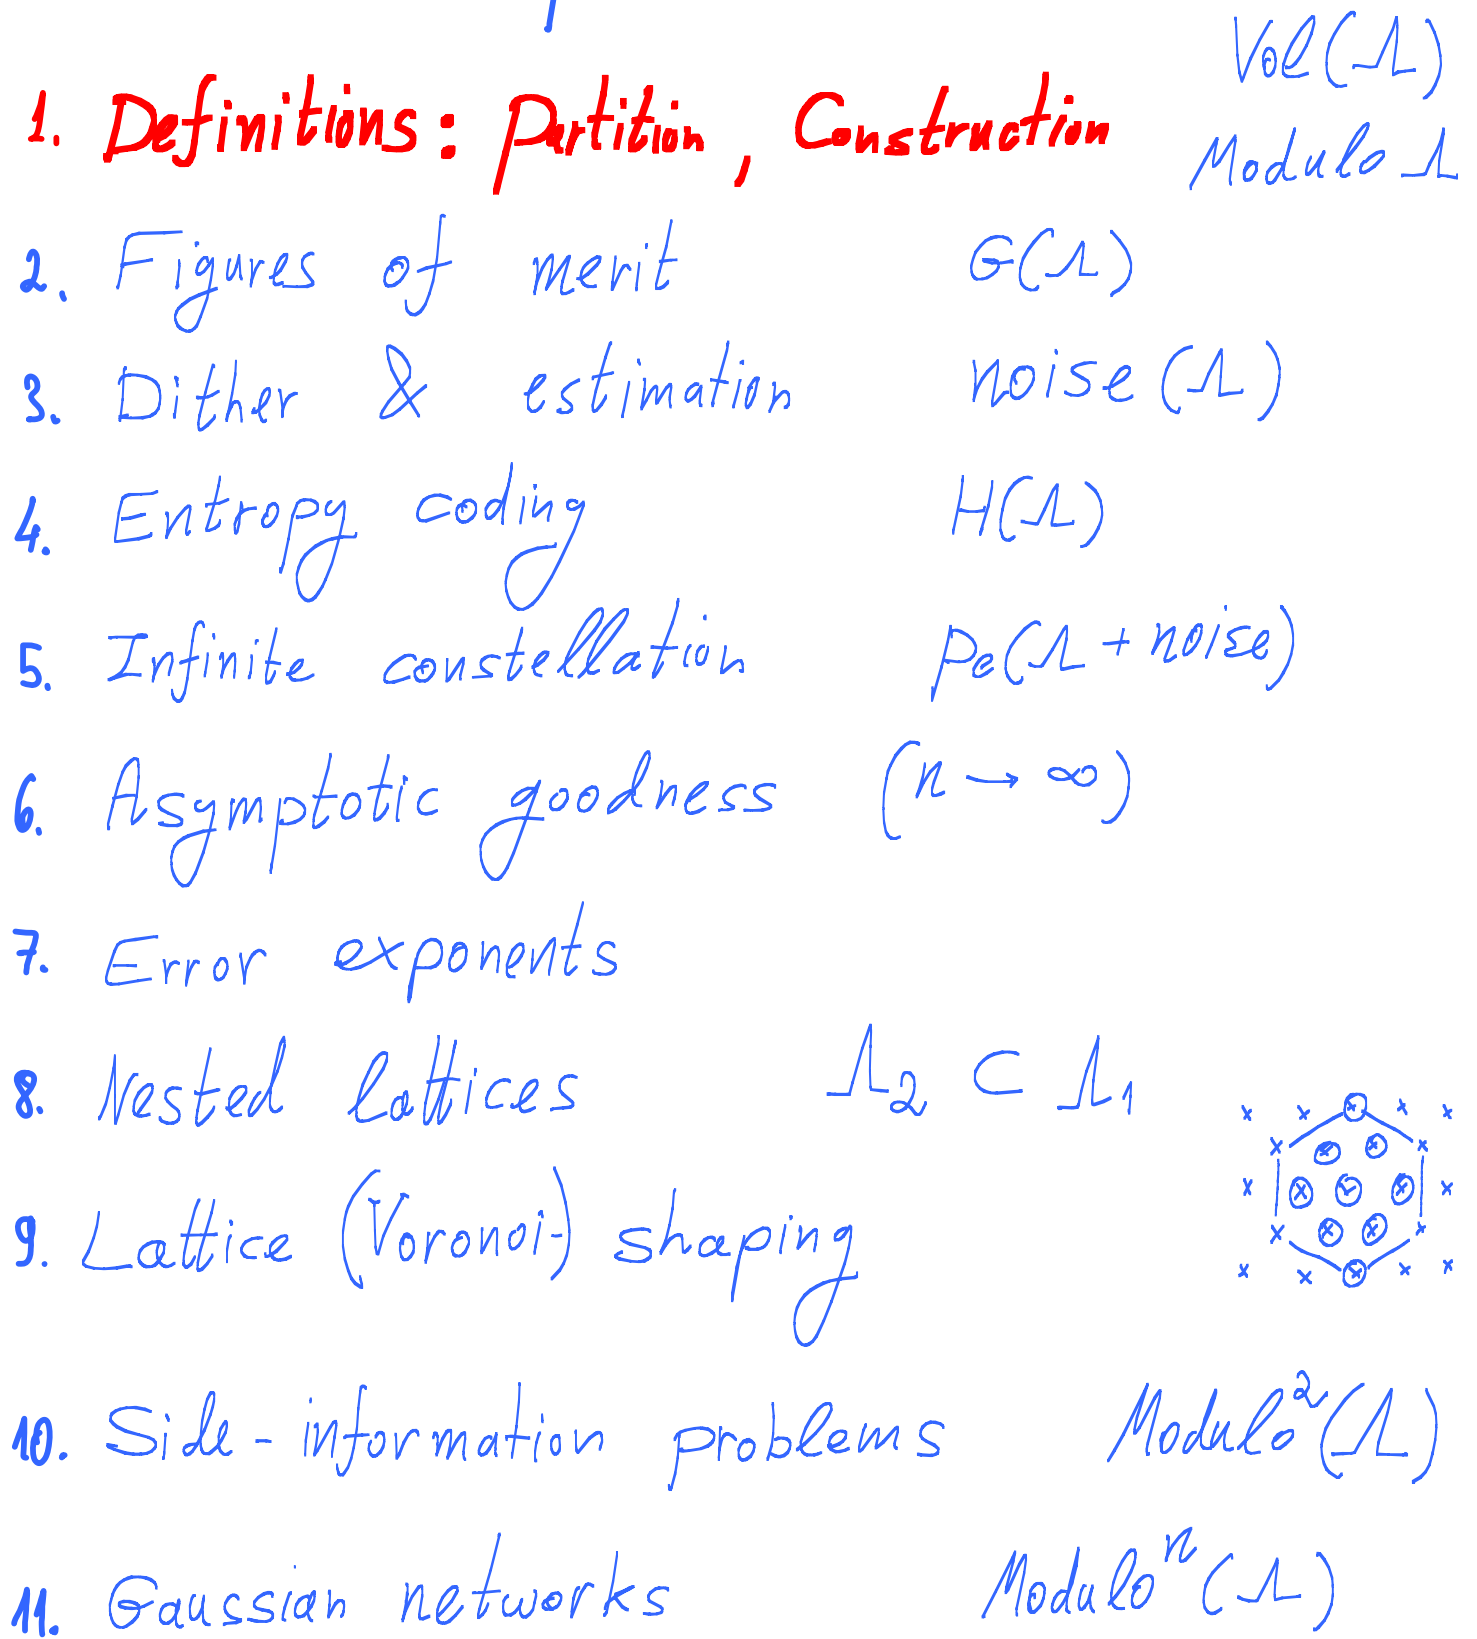 Vol(Λ)
1. Definitions: Partition, Construction
Modulo Λ
2. Figures of merit G(Λ)
3. Dither & estimation noise(Λ)
4. Entropy coding H(Λ)
5. Infinite constellation Pe(Λ + noise)
6. Asymptotic goodness (n → ∞)
7. Error exponents
8. Nested lattices Λ₂ ⊂ Λ₁
9. Lattice (Voronoi-) shaping
10. Side-information problems Modulo²(Λ)
11. Gaussian networks Moduloⁿ(Λ)